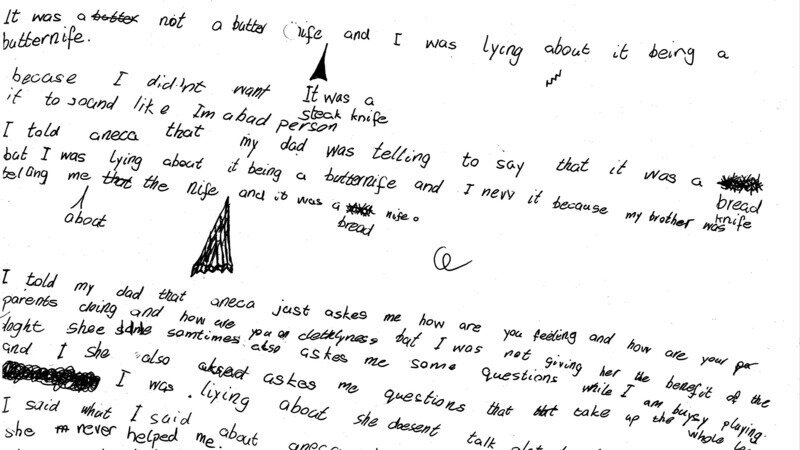 It was a butter not a butter nife and I was lying about it being a
butternife.
becase I didn't want It was a
it to sound like Im a bad person steak knife
I told aneca that my dad was telling to say that it was a
but I was lying about it being a butternife and I nevv it because my brother was bread knife
telling me that the nife and it was a nife.
about bread
I told my dad that aneca just askes me how are you feeling and how are your par
parents doing and how are you but I was not giving her the benefit of the
doght shee somtimes also askes me some questions while I am buysy playing.
and I she also askes me questions that take up the whole
I was lying about she doesent talk
I said what I said about
she never helped me.